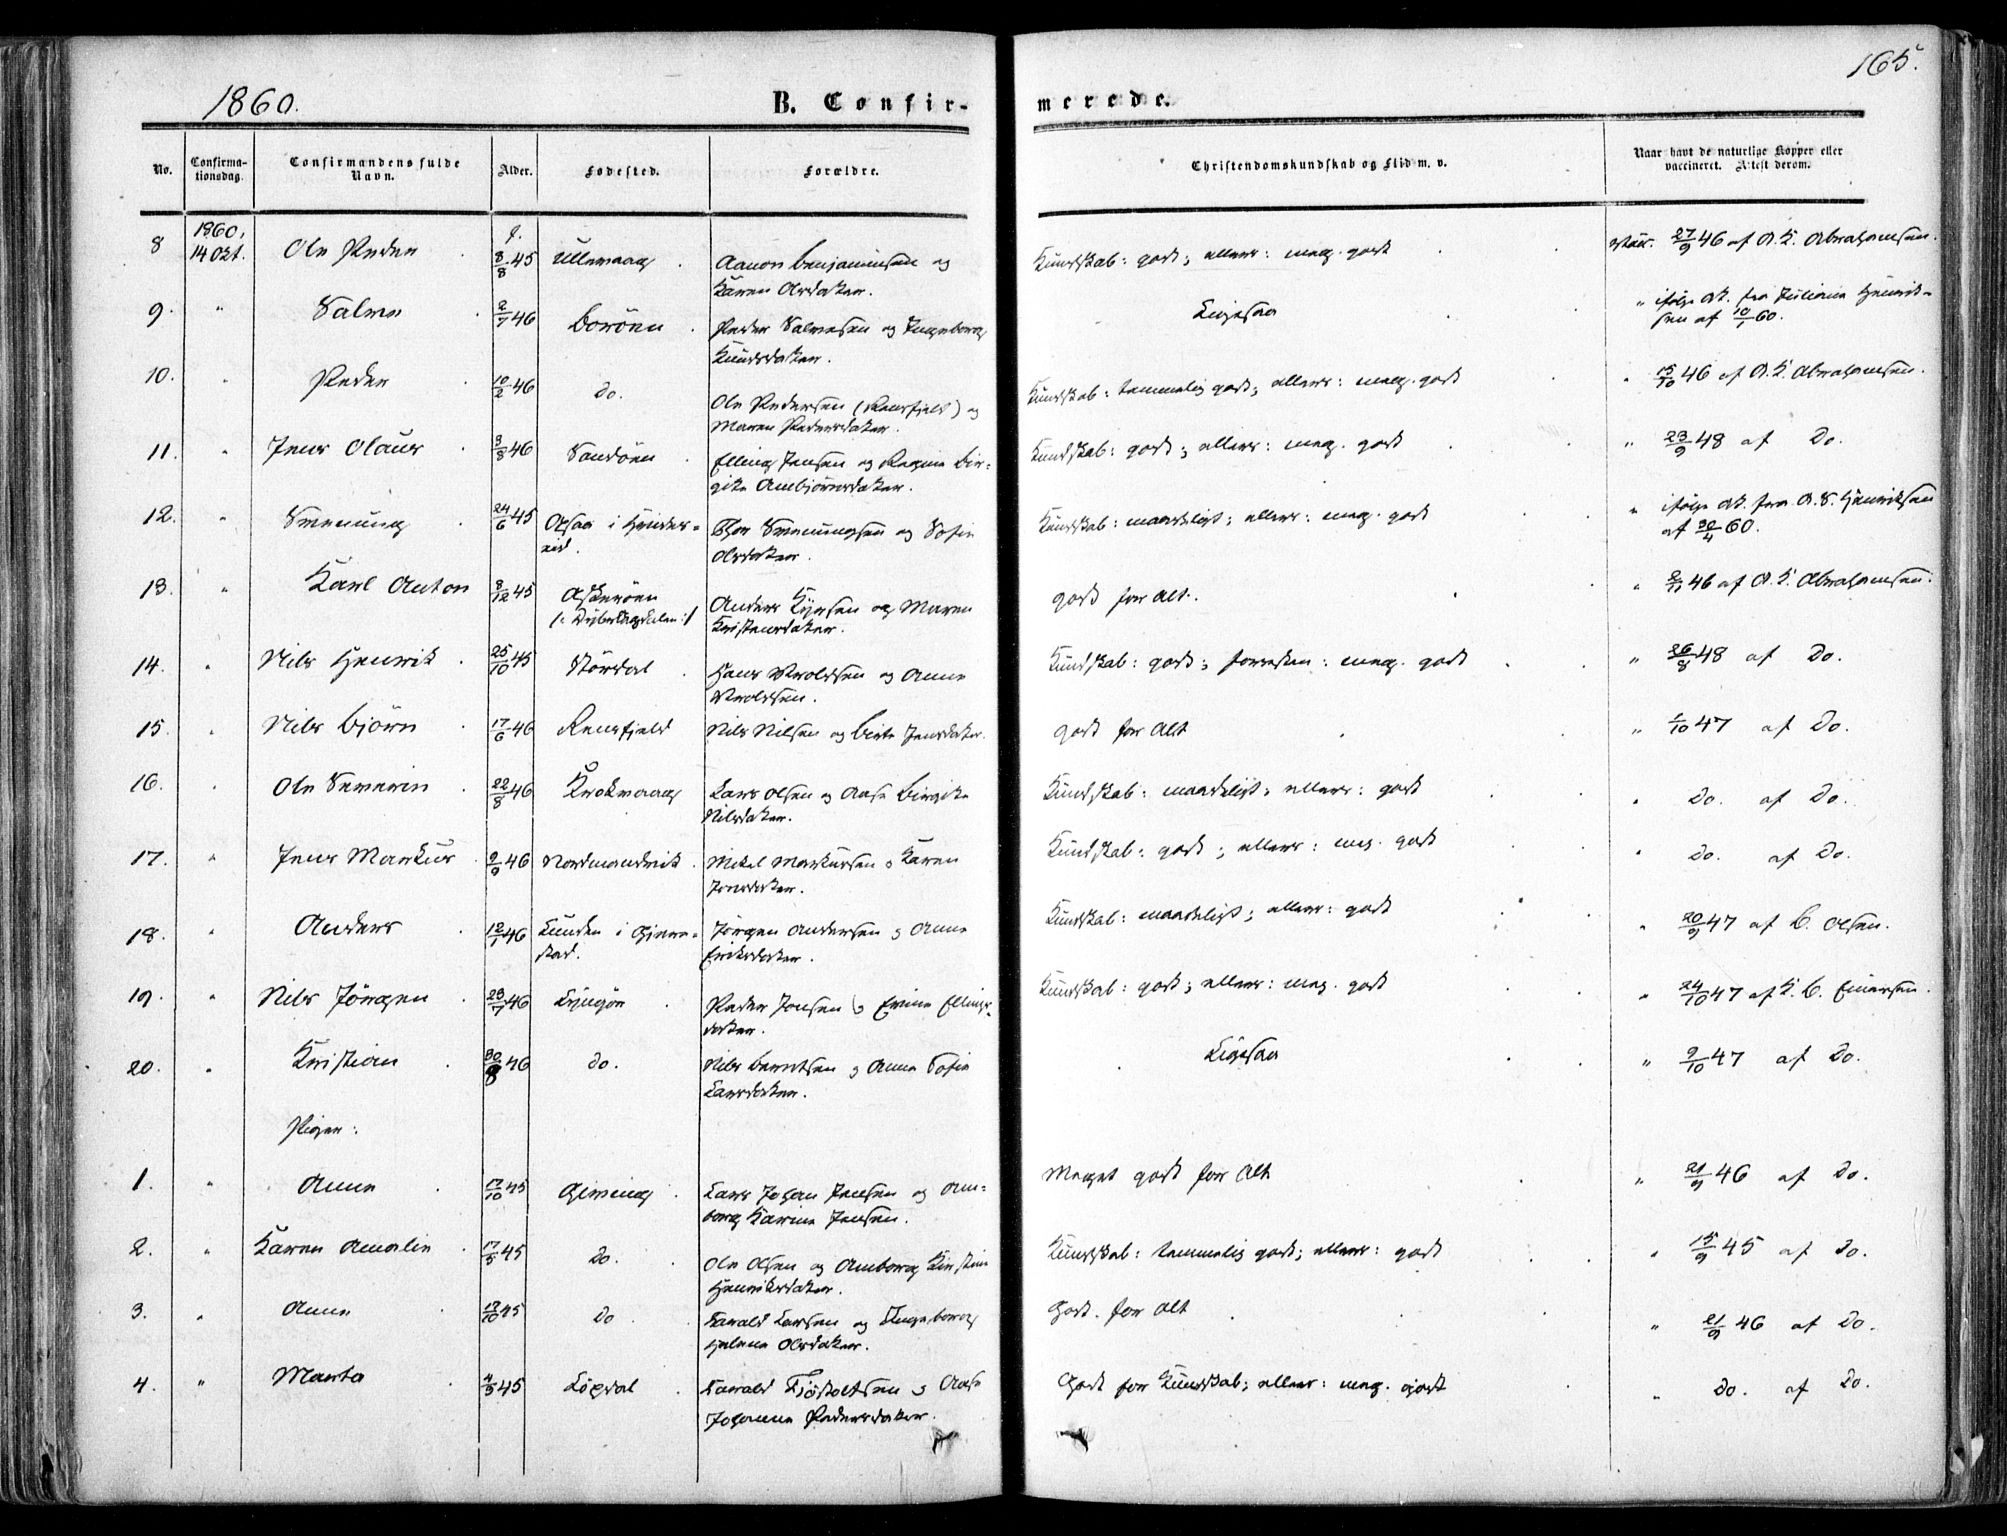 1860.
B. Confir-
merede.
165.
No.
Confirma-
tionsdag.
Confirmandens fulde
Navn.
Alder.
Fødested.
Forældre.
Christendomskundskab og Flid m. v.
Naar havt de naturlige Kopper eller
vaccineret. Attest derom.
8 1860, 14 Okt. Ole Peder 8/8 45 Ullevaag Aanon Benjaminsen og
Karen Olsdatter.
Kundskab: godt; ellers: meg. godt
27/9 46 af A. K. Abrahamsen.
9. " Salve 2/7 46 Borøen Peder Salvesen og Ingeborg
Knudsdatter.
Ligesaa
" ifølge At. fra Juliane Henrik-
sen af 10/1 60.
10. " Peder 10/2 46 do. Ole Pedersen (Rensfjeld) og
Maren Pedersdatter.
Kundskab: temmelig godt; ellers: meg. godt
" 15/10 46 af A. K. Abrahamsen.
11. " Jens Olaus 3/8 46 Sandøen Elling Jensen og Regine Bir-
gite Ambjørnsdatter.
Kundskab: godt; ellers: meg. godt
" 23/9 48 af Do.
12. " Svenung 24/6 45 i
Thor Svenungsen og Sofie
Olsdatter.
Kundskab: maadeligt; ellers: meg. godt
" ifølge At. fra A. S. Henriksen
af 30/4 60.
13. " Karl Anton 8/12 45 Askerøen
(: Dybedagsdalen :)
Anders og Maren
Kristensdatter.
godt for Alt.
" 46 af A. K. Abrahamsen.
14. " Nils Henrik 25/10 45 Størdal Hans Weroldsen og Anne
Weroldsen.
Kundskab: godt; forresten: meg. godt
" 26/8 48 af Do.
15. " Nils Bjørn 17/6 46 Rensfjeld Nils Nilsen og Birte Jensdatter.
godt for Alt
" /10 47 af Do.
16. " Ole Severin 22/8 46 Krokvaag Lars Olsen og Aase Birgite
Nilsdatter.
Kundskab: maadeligt; ellers: godt
" Do. af Do.
17. " Jens Markus 9/9 46 Nordmandvik Mikel Markussen o Karen
Jensdatter.
Kundskab: godt; ellers: meg. godt
" Do. af Do.
18. " Anders 12/1 46 Lunden i Gjere-
stad.
Jørgen Andersen o Anne
Eriksdatter.
Kundskab: maadeligt; ellers: godt
" 20/9 47 af B. Olsen.
19. " Nils Jørgen 23/7 46 Lyngør Peder Jensen o Evine Ellings-
datter.
Kundskab: godt; ellers: meg. godt
" 24/10 47 af K. B. Einersen.
20. " Kristian 30/8 46 do. Nils Berntsen o Anne Sofie
Larsdatter.
Ligesaa
" 9/10 47 af Do.
Piger:
1. " Anne 12/10 45 Gjeving Lars Johan Jensen og Am-
borg Karine Jensen.
Meget godt for Alt
" 21/9 46 af Do.
2. " Karen Amalie 17/5 45 Do. Ole Olsen og Amborg Kirstine
Henriksdatter.
Kundskab: temmelig godt; ellers: godt
" 15/9 45 af Do.
3. " Anne 12/10 45 Do Tarald Larsen og Ingeborg
Helene Olsdatter.
Godt for Alt
" 21/9 46 af Do.
4. " Marta 4/5 45 Løgdal Tarald Fjøstoltsen o Aase
Johanne Pedersdatter.
Godt for Kundskab; ellers: meg. godt
" Do. af Do.